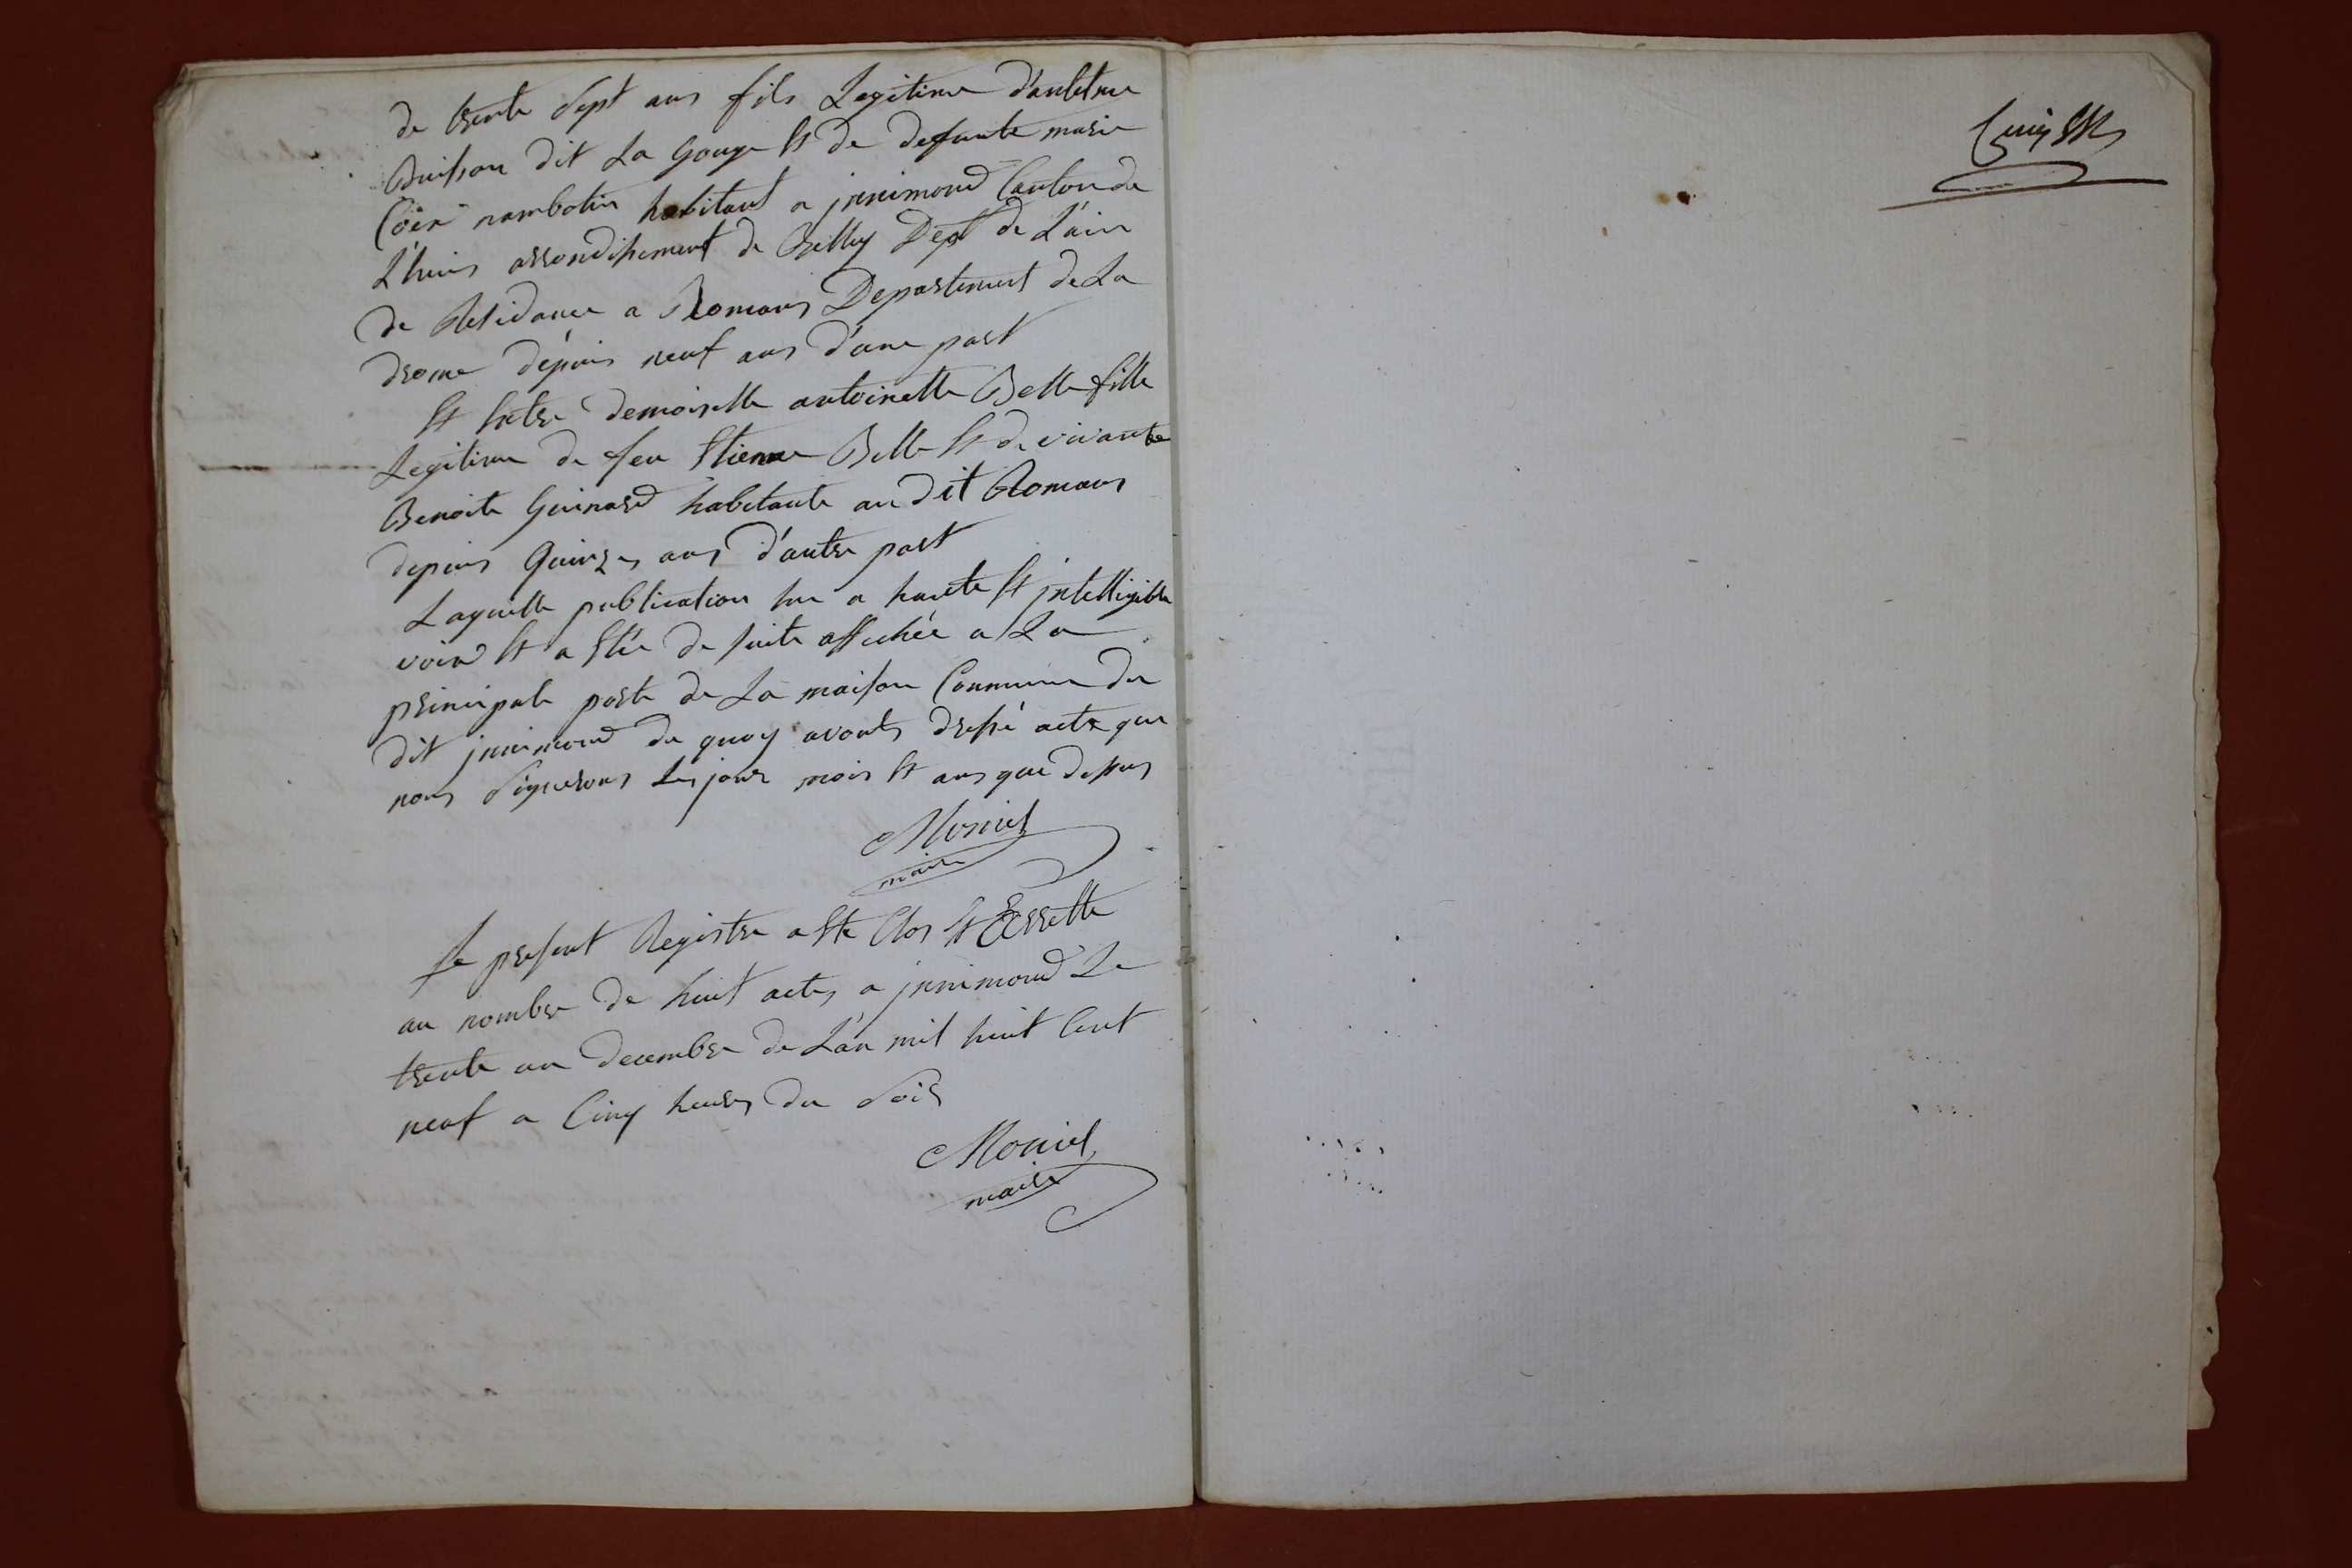 de trente sept ans fils Legitime d'antelme
Buisson dit La Gouge et de defunte marie
rambotin habitant a jnnimond Canton de
L'huis arrondissement de Belley Dept de L'ain
de Residance a Romans Departement de La
drome dépuis neuf ans d'une part
et entre demoiselle antoinette Belle fille
Legitime de feu Etienne Belle et de vivante
Benoite Guinard habitante au dit Romans
depuis Quinze ans d'autre part
Laquelle publication lue a haute et jntelligible
voix et a étée de suite affichée a La
principale porte de La maison Commune du
dit jnnimond de quoy avonts dressé acte que
nous Signerons Les jour mois et ans que dessus
maire
Le present Registre a ete Clos et Erretté
au nombre de huit actes a jnnimond Le
trente un decembre de L'an mil huit Cent
neuf a Cinq heures du Soir
maire